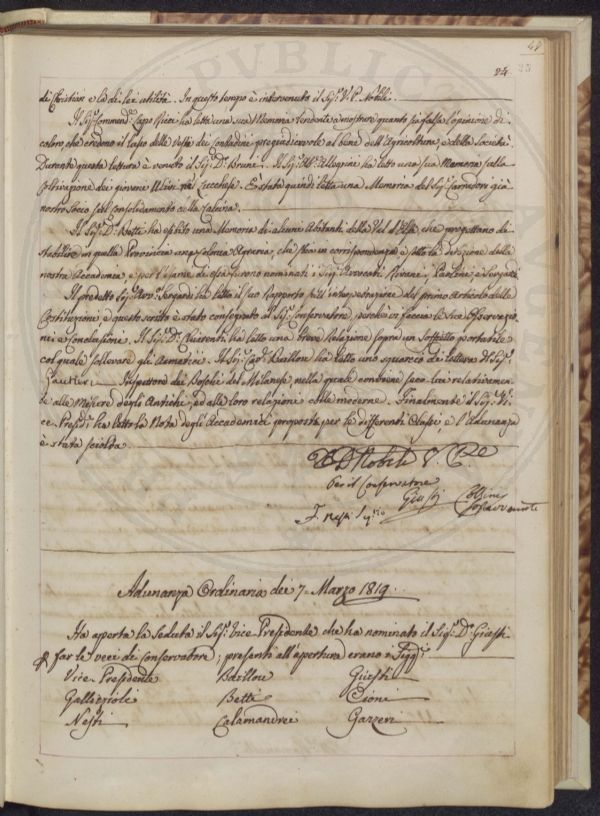 24.
di Christian e la di lei utilità. In questo tempo è intervenuto il Sig.r V. P. Nobili.
Il Sig.r Commend.r Lapo Ricci ha letta una sua Memoria tendente a mostrare quanto sia falsa l'opinione di
coloro che credono il lusso delle Vesti dei Contadini pregiudicevole al bene dell'Agricoltura, e della Società
Durante questa lettura è venuto il Sig.r D. Bruni. Il Sig.r Allegrini ha letto una sua Memoria sulla
Coltivazione dei giovani Ulivi. È stata quindi letta una Memoria del Sig.r Carradori già
nostro Socio sul consolidamento della Calcina.
Il Sig.r D. Betti ha esibito una Memoria di alcuni Abitanti della Val d'Elsa che progettano di
stabilire in quella Provincia una Colonia Agraria, che stia in corrispondenza e sotto la direzione della
nostra Accademia, e per l'esame di essa furono nominati i Sigg.ri Avvocati Rivani, Paolini, e Sergardi
Il predetto Sig.r Avv.o Sergardi ha letto il suo Rapporto sull'interpretazione del primo Articolo delle
Costituzioni, e questo scritto è stato consegnato al Sig.r Conservatore, perchè vi faccia le sue Osservazio-
ni e conclusioni. Il Sig.r D. Chiarenti ha letto una breve Relazione sopra un Soffietto portatile
col quale sollevare gli Asmatici. Il Sig.r Cav.r Baillou ha letto uno squarcio di lettera del Sig.r
Gautier Ispettore dei Boschi del Milanese, nella quale contiene sua lue relativamen-
te alle Misure degli Antichi, ed alla loro relazione colle moderne. Finalmente il Sig.r Vi-
ce Presid.e ha letto la Nota degli Accademici proposti per le differenti Classi, e l'Adunanza
è stata sciolta.
Nobili V. P.e
Per il Conservatore
Giusti
F. Nesti Seg.rio
Adunanza Ordinaria dei 7. Marzo 1819.
Ha aperta la Seduta il Sig.r Vice Presidente che ha nominato il Sig.r D. Giusti
p far le veci di Conservatore; presenti all'apertura erano i Sigg.ri
Vice-Presidente Baillou Giusti
Gallizioli Betti Cioni
Nesti Calamandrei Gazzeri